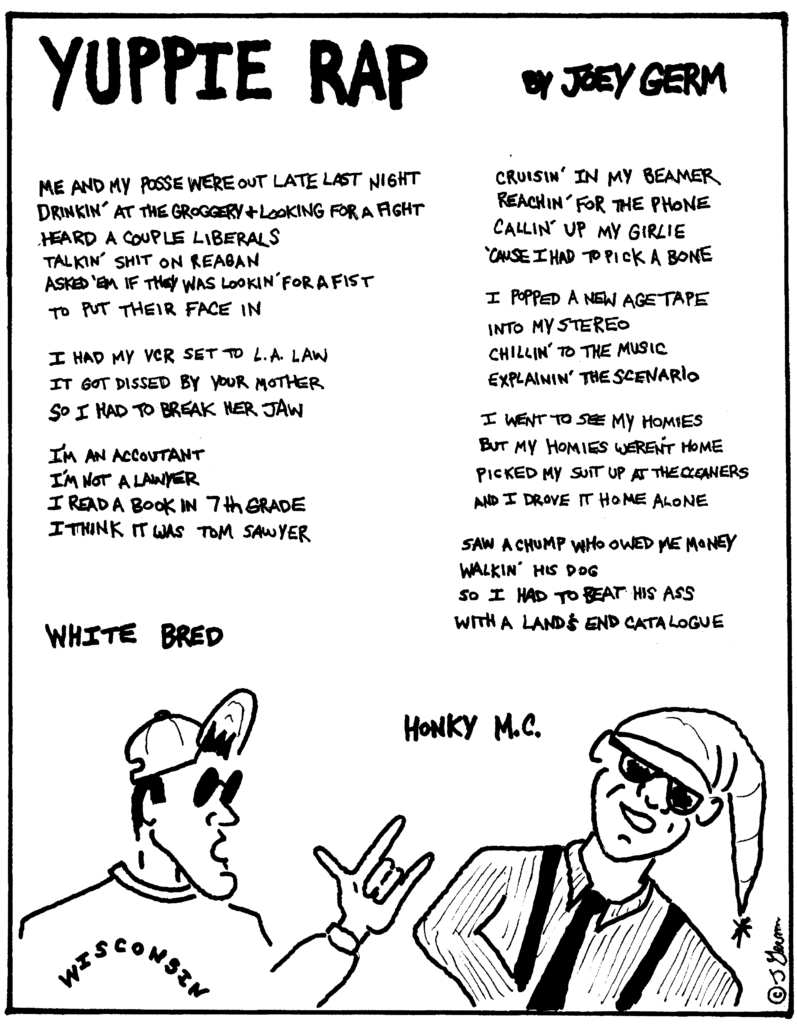 YUPPIE RAP
BY JOEY GERM
ME AND MY POSSE WERE OUT LATE LAST NIGHT
DRINKIN' AT THE GROGGERY + LOOKING FOR A FIGHT
HEARD A COUPLE LIBERALS
TALKIN' SHIT ON REAGAN
ASKED 'EM IF THEY WAS LOOKIN' FOR A FIST
TO PUT THEIR FACE IN
I HAD MY VCR SET TO L.A. LAW
IT GOT DISSED BY YOUR MOTHER
SO I HAD TO BREAK HER JAW
I'M AN ACCOUTANT
I'M NOT A LAWYER
I READ A BOOK IN 7th GRADE
I THINK IT WAS TOM SAWYER
CRUISIN' IN MY BEAMER
REACHIN' FOR THE PHONE
CALLIN' UP MY GIRLIE
'CAUSE I HAD TO PICK A BONE
I POPPED A NEW AGE TAPE
INTO MY STEREO
CHILLIN' TO THE MUSIC
EXPLAININ' THE SCENARIO
I WENT TO SEE MY HOMIES
BUT MY HOMIES WEREN'T HOME
PICKED MY SUIT UP AT THE CLEANERS
AND I DROVE IT HOME ALONE
SAW A CHUMP WHO OWED ME MONEY
WALKIN' HIS DOG
SO I HAD TO BEAT HIS ASS
WITH A LANDS END CATALOGUE
WHITE BRED
HONKY M.C.
WISCONSIN
© J Germ